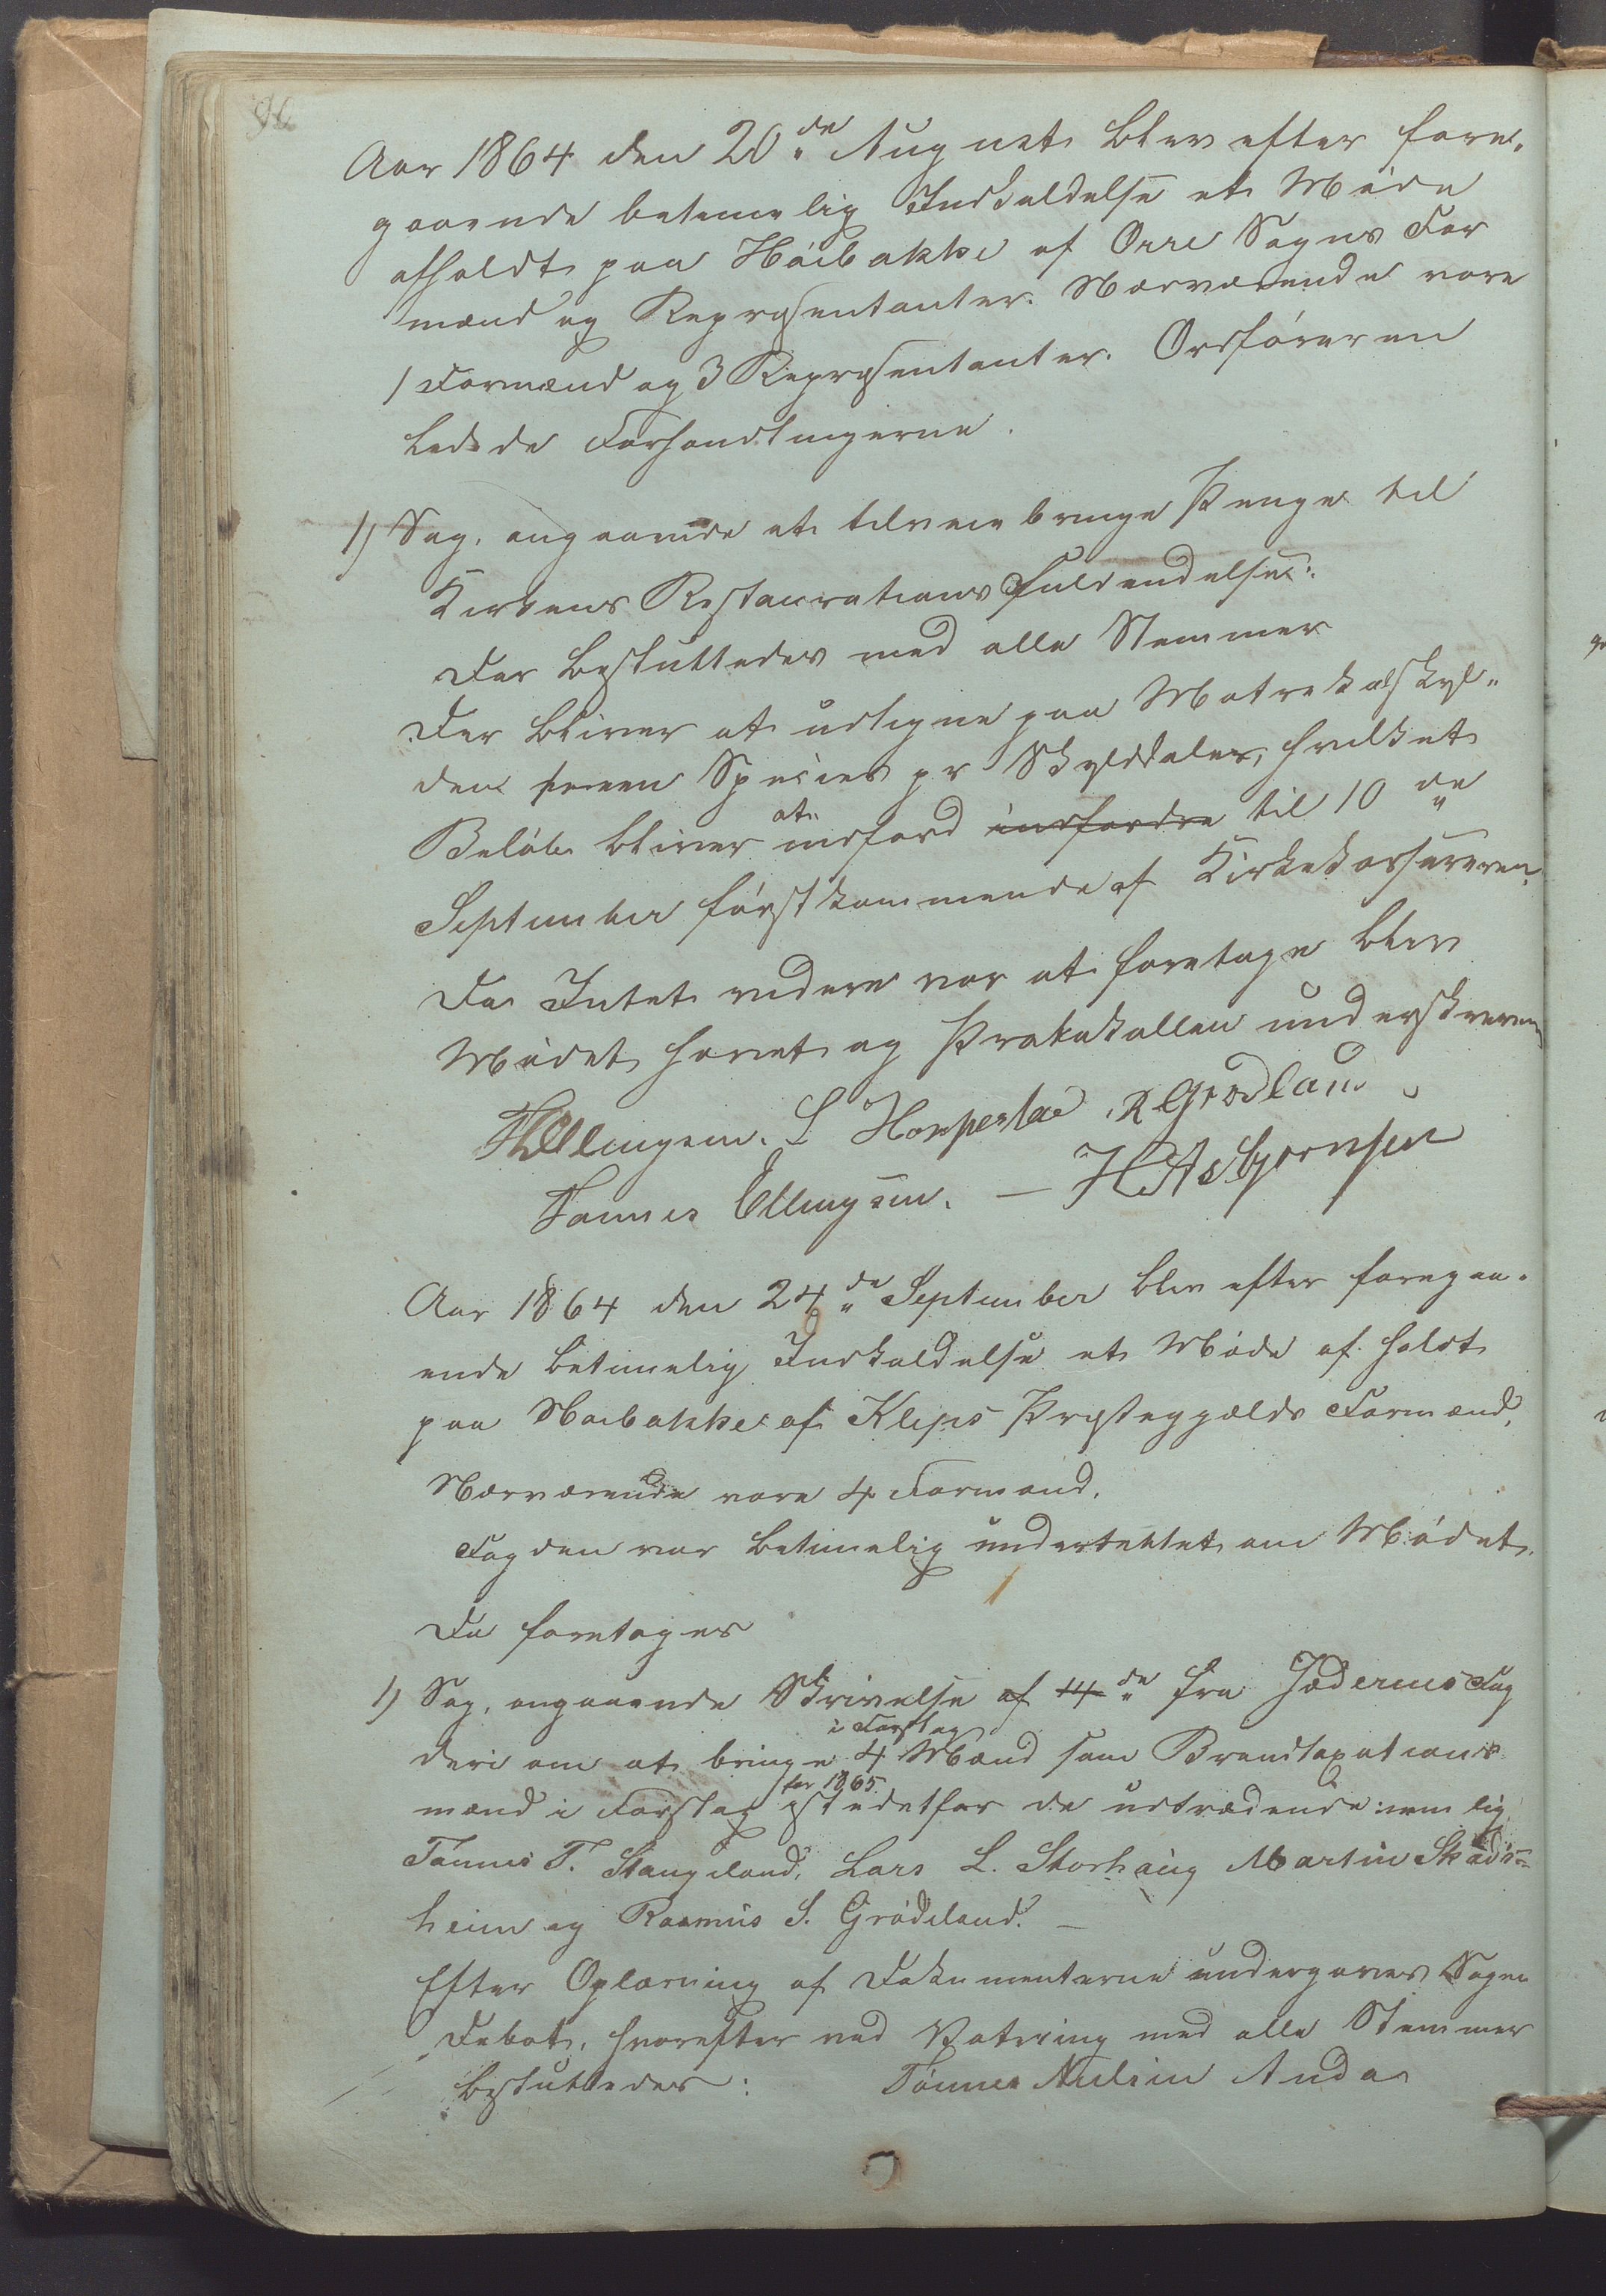 Aar 1864 den 20de August blev efter fore-
gaaende betimelig Indkaldelse et Møde
afholdt paa Høibakke af Orre Sogns For
mænd og Repræsentanter. Nærværende vare
1 Formænd og 3 Repræsentanter. Ordføreren
ledede Forhandlingerne.
1) Sag, angaaende at tilveiebringe Penge til
Kirkens Restaurations Fuldendelse:
Der besluttedes med alle Stemmer
Der bliver at udligne paa Matrekulskyl-
den een Species pr Skylddaler, hvilket
Beløb bliver at indford indfordre til 10de
September førstkommende af Kirkekassereren.
Da Intet videre var at foretage blev
Mødet hævet og Protokollen underskreven
T Ellingsen. S Horpestad R Grødland
Tønnes Ellingsen. — H Asbjørnsen
Aar 1864 den 24de September blev efter foregaa-
ende betimelig Indkaldelse et Møde afholdt
paa Høibakke af Kleps Præstegjælds Formænd,
Nærværende vare 4 Formænd.
Fogden var betimelig underrettet om Mødet.
Da foretoges
1) Sag, angaaende Skrivelse af 14de fra Jæderens Fog
deri om at bringe i Forslag 4 Mænd som Brandtaxations
mænd i Forslag for 1865 istedetfor de udtrædende: nemlig
Tønnes T. Stangeland, Lars L. Storhaug Martin Skads-
heim og Rasmus S. Grødeland. —
Efter Oplæsning af Dokumenterne undergaves Sagen
Debat, hvorefter ved Votering med alle Stemmer
besluttedes: Tønnes Andas